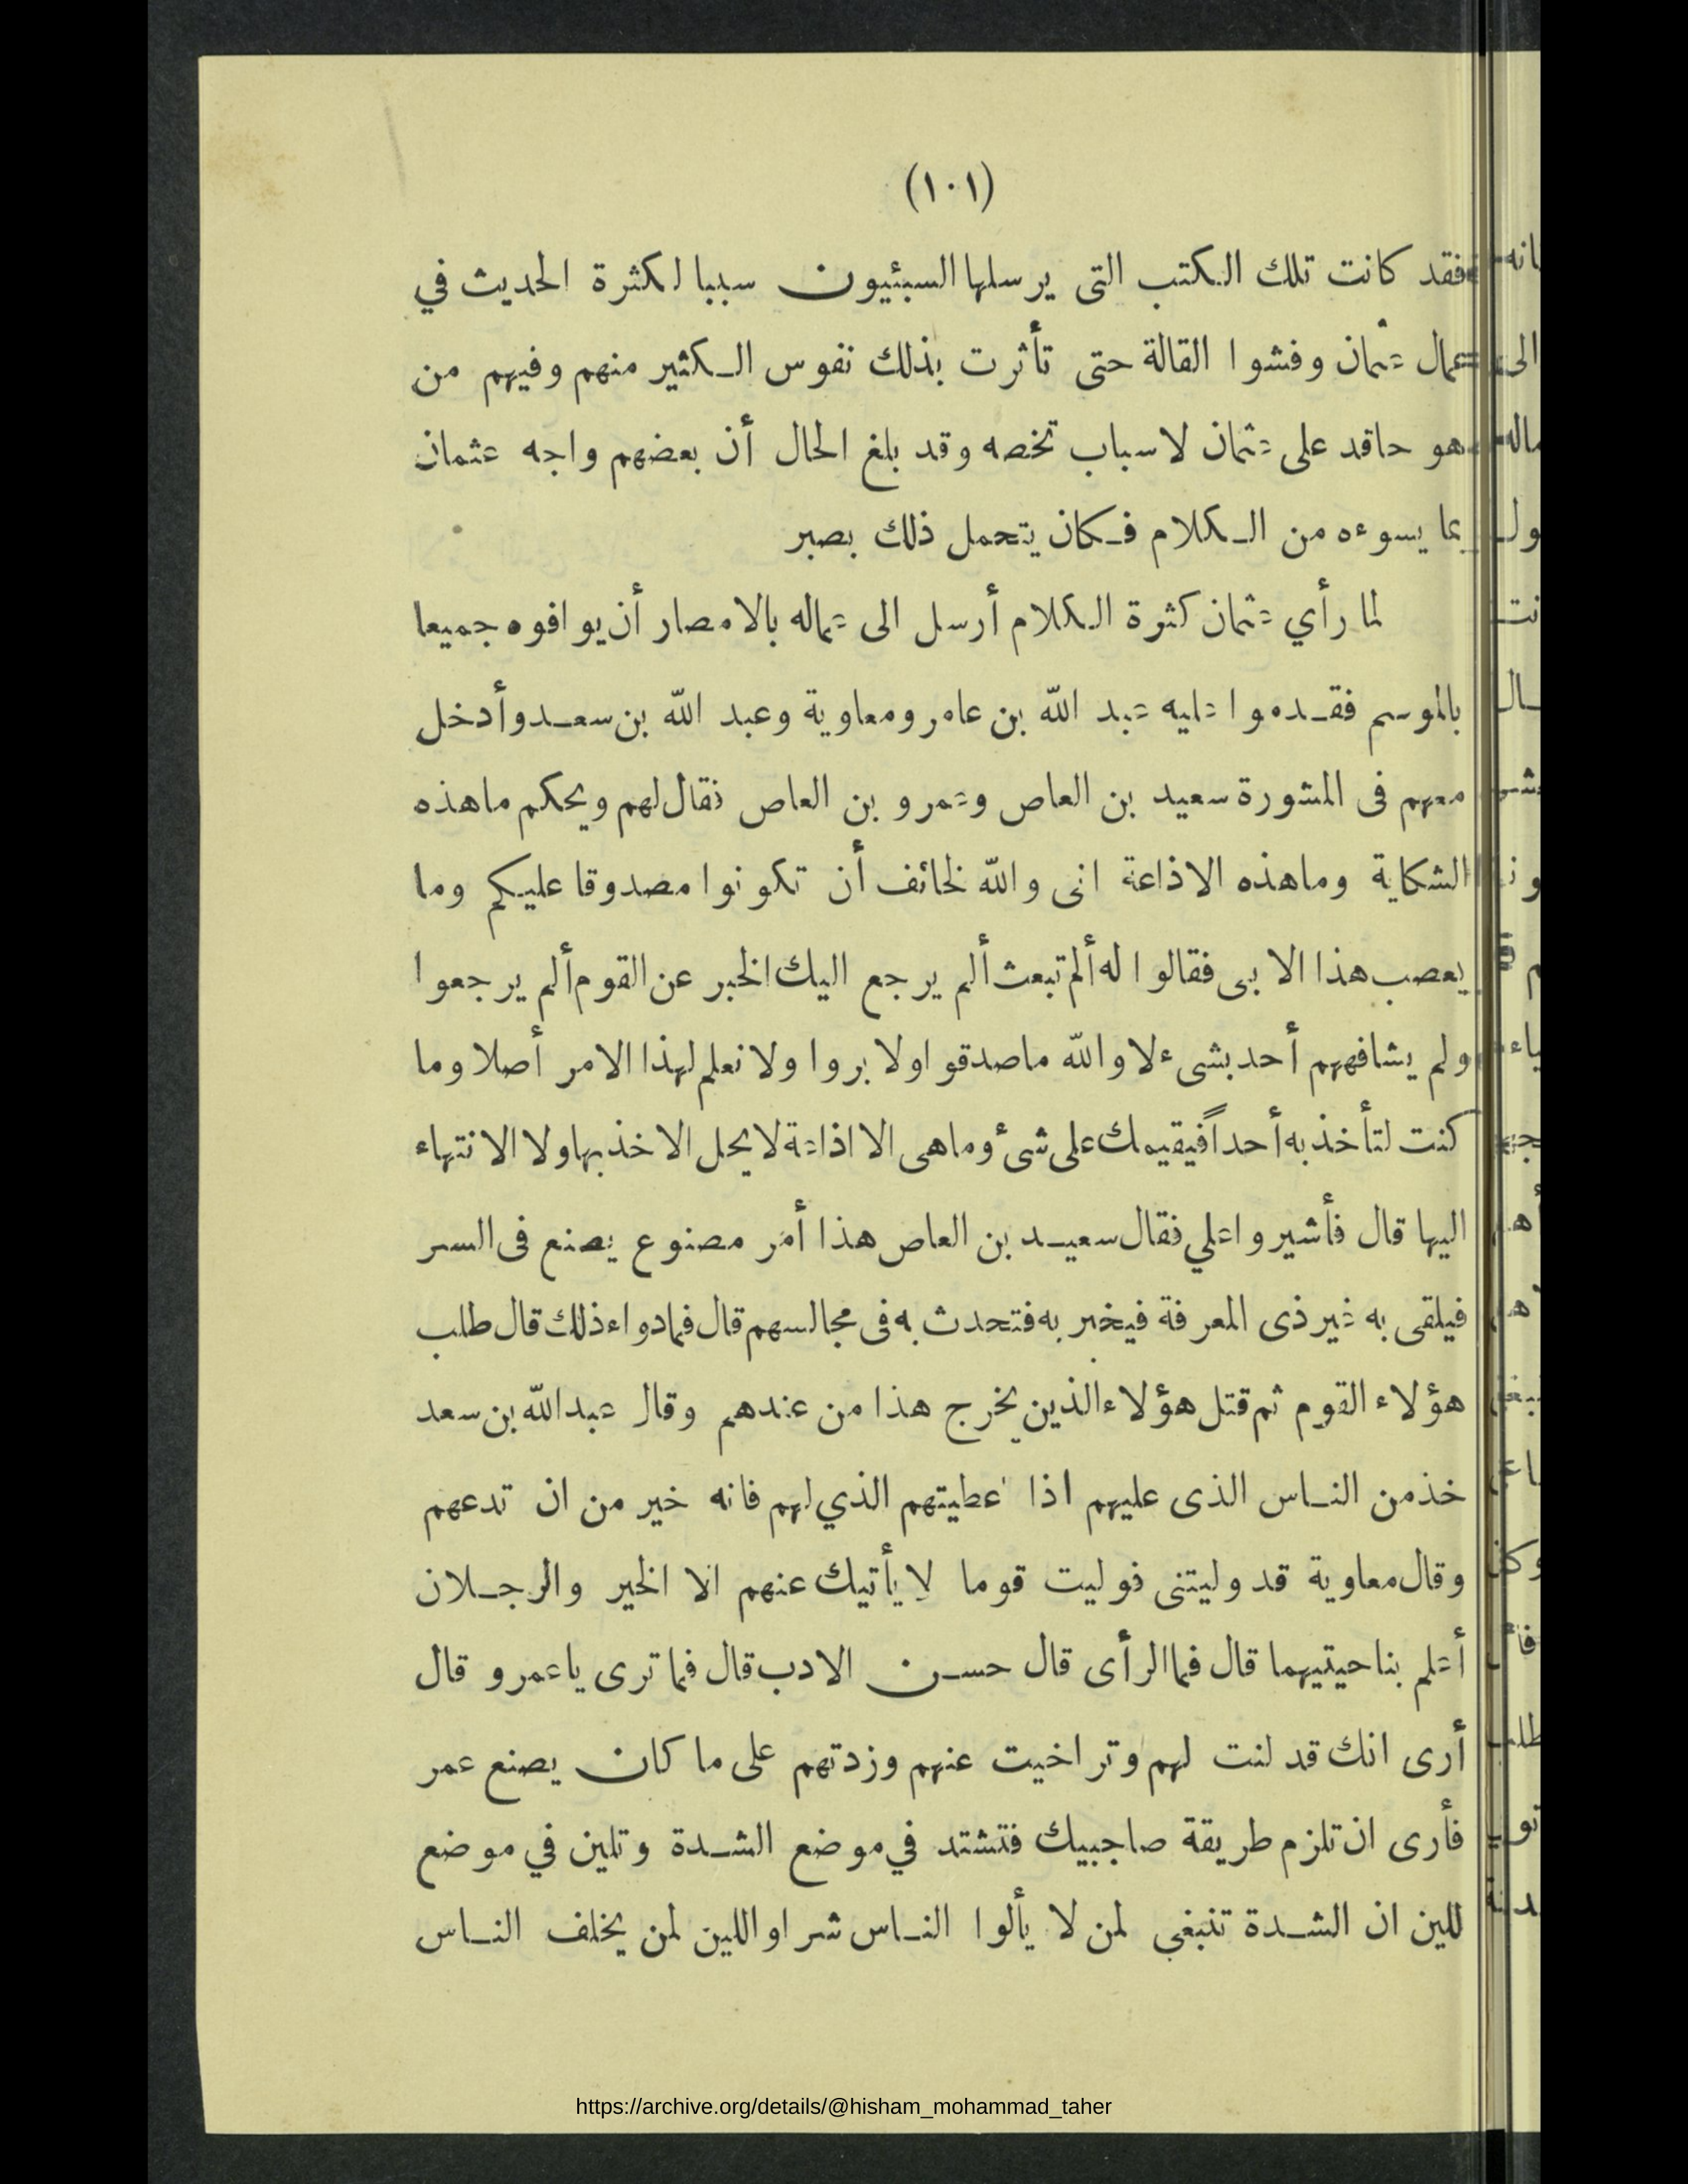 (١٠١)
فقد كانت تلك الكتب التى يرسلها السبئيون سببا لكثرة الحديث في
عمال عثمان وفشوا القالة حتى تأثرت بذلك نفوس الكثير منهم وفيهم من
هو حاقد على عثمان لاسباب تخصه وقد بلغ الحال أن بعضهم واجه عثمان
بما يسوءه من الكلام فكان يتحمل ذلك بصبر
لما رأي عثمان كثرة الكلام أرسل الى عماله بالامصار أن يوافوه جميعا
بالموسم فقدموا عليه عبد الله بن عامر ومعاوية وعبد الله بن سعد وأدخل
معهم فى المشورة سعيد بن العاص وعمرو بن العاص فقال لهم ويحكم ماهذه
الشكاية وماهذه الاذاعة انى والله لخائف أن تكونوا مصدوقا عليكم وما
يعصب هذا الا بى فقالوا له ألم تبعث ألم يرجع اليك الخبر عن القوم ألم يرجعوا
ولم يشافههم أحد بشىء لا والله ماصدقوا ولا بروا ولا نعلم لهذا الامر أصلا وما
كنت لتأخذ به أحداً فيقيمك على شئ وماهى الا اذاعة لا يحل الاخذ بها ولا الانتهاء
اليها قال فأشيروا علي فقال سعيد بن العاص هذا أمر مصنوع يصنع فى السر
فيلقى به غير ذى المعرفة فيخبر به فتحدث به فى مجالسهم قال فمادواء ذلك قال طلب
هؤلاء القوم ثم قتل هؤلاء الذين يخرج هذا من عندهم وقال عبد الله بن سعد
خذ من الناس الذى عليهم اذا أعطيتهم الذي لهم فانه خير من ان تدعهم
وقال معاوية قد وليتنى فوليت قوما لا يأتيك عنهم الا الخير والرجلان
أعلم بناحيتيهما قال فما الرأى قال حسن الادب قال فما ترى ياعمرو قال
أرى انك قد لنت لهم وتراخيت عنهم وزدتهم على ما كان يصنع عمر
فأرى ان تلزم طريقة صاحبيك فتشتد في موضع الشدة وتلين في موضع
للين ان الشدة تنبغي لمن لا يألوا الناس شرا واللين لمن يخلف الناس
https://archive.org/details/@hisham_mohammad_taher